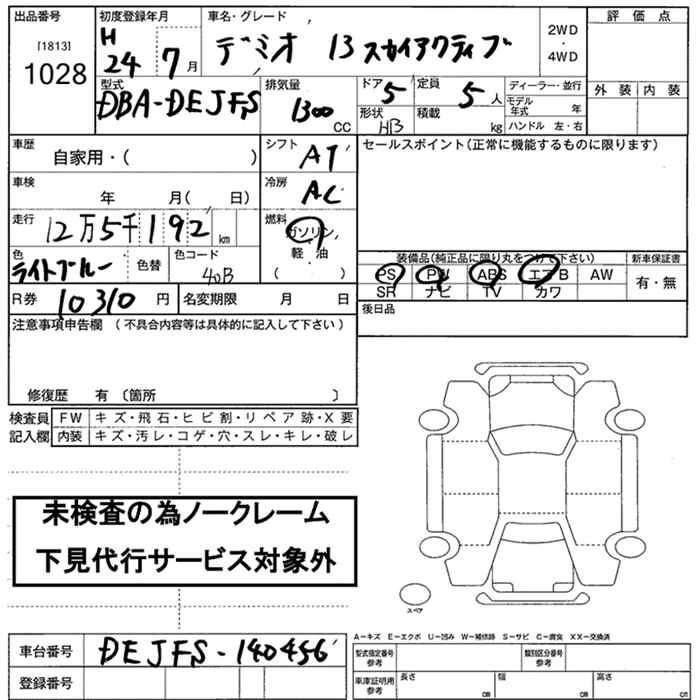 出品番号
[1813]
1028
初度登録年月
H
24 7 月
車名・グレード
デミオ 13 スカイアクティブ
2WD
・
4WD
評価点
外装 内装
型式
DBA-DEJFS
排気量
1300
CC
ドア 5
形状 HB
定員 5 人
積載 kg
ディーラー・並行
モデル年式 年
ハンドル 左・右
車歴
自家用・( )
シフト
AT
セールスポイント(正常に機能するものに限ります)
車検
年 月( 日)
冷房
AC
走行
12万5千192 km
燃料
ガソリン
軽油
( )
色
ライトブルー
色替
色コード
40B
装備品(純正品に限り丸をつけて下さい)
PS PW ABS エアB AW
SR ナビ TV カワ
新車保証書
有・無
R券 10310 円
名変期限 月 日
後日品
注意事項申告欄 (不具合内容等は具体的に記入して下さい)
修復歴 有 〔箇所 〕
検査員記入欄
FW キズ・飛石・ヒビ割・リペア跡・X要
内装 キズ・汚レ・コゲ・穴・スレ・キレ・破レ
未検査の為ノークレーム
下見代行サービス対象外
スペア
車台番号 DEJFS-140456
登録番号
A-キズ E-エクボ U-凹み W-補修跡 S-サビ C-腐食 XX-交換済
型式指定番号
参考
類別区分番号
参考
車庫証明用
参考
長さ cm
幅 cm
高さ cm